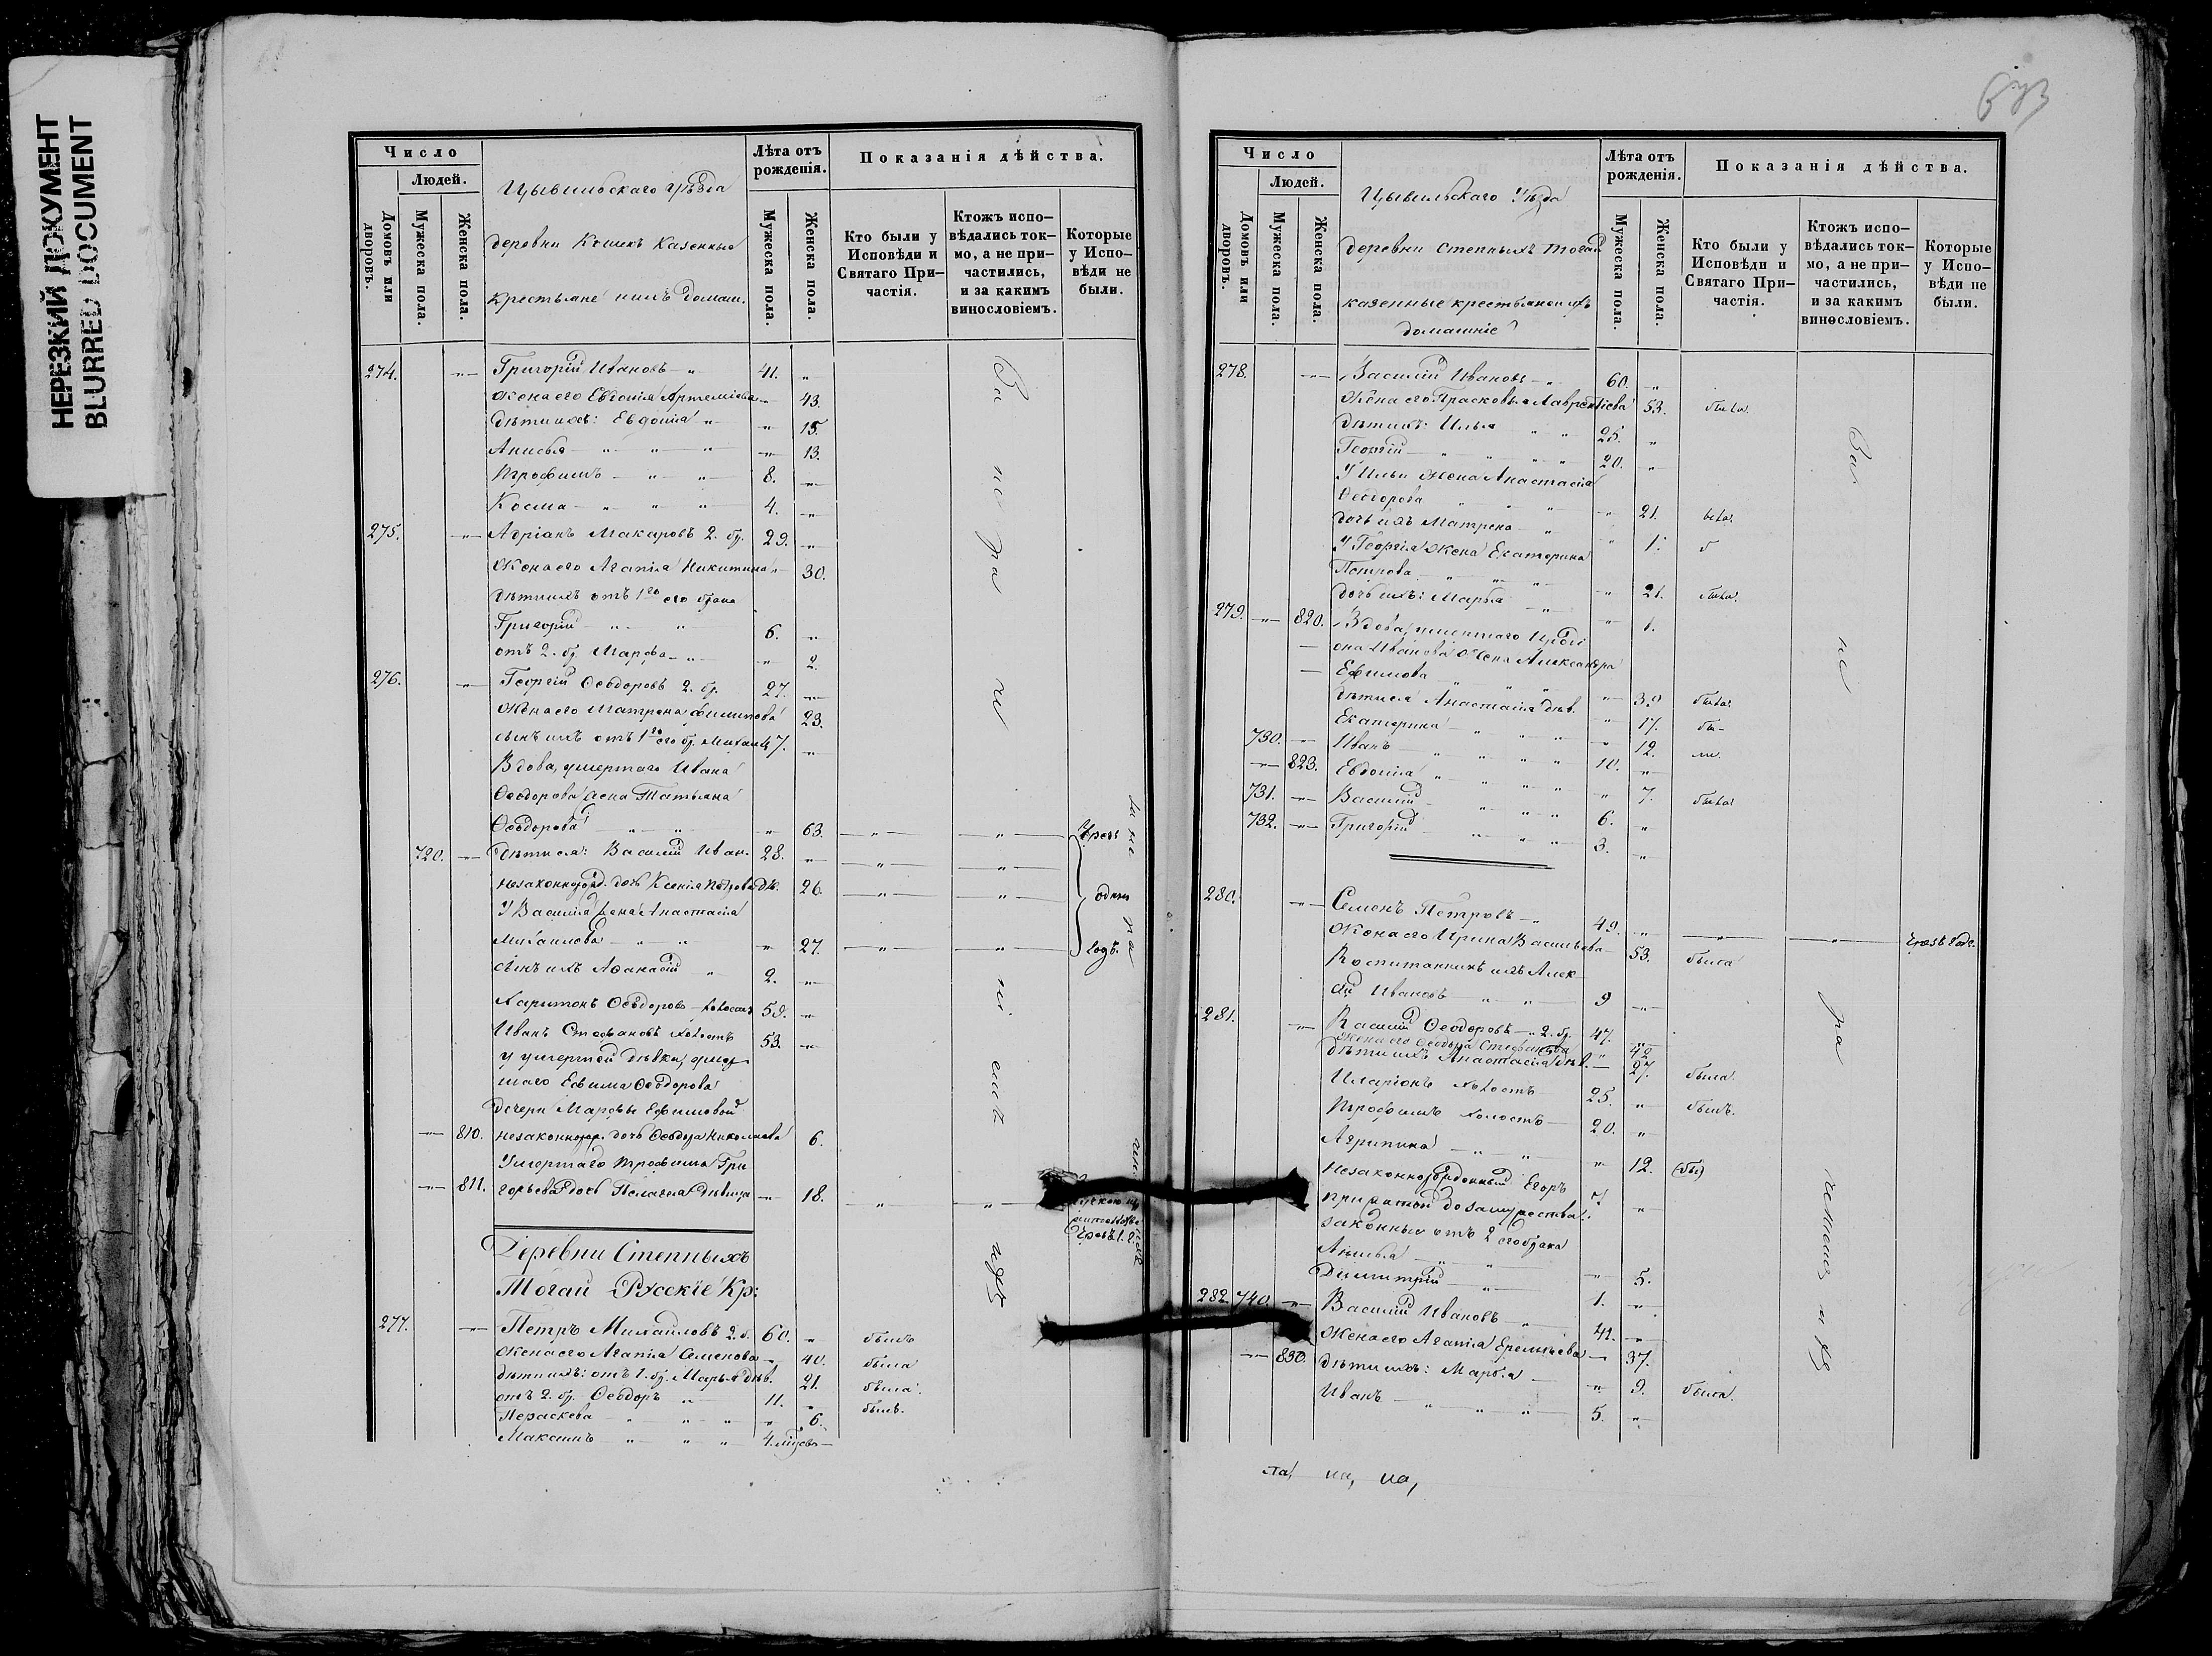 НЕРЕЗКИЙ ДОКУМЕНТ
BLURRED DOCUMENT
Число
Людей.
Домовъ или дворовъ.
Мужеска пола.
Женска пола.
Цывильскаго уѣзда
деревни Кошекъ Казенные
крестьяне
Лѣта отъ рожденія.
Мужеска пола.
Женска пола.
Показанія дѣйства.
Кто были у Исповѣди и Святаго Причастія.
Ктожъ исповѣдались токмо, а не причастились, и за какимъ винословіемъ.
Которые у Исповѣди не были.
274. Григорій Ивановъ 41.
Жена его Евдокія Артемьева 43.
Дѣти ихъ: Евдокія 15.
Анисья 13.
Трофимъ 8.
Косма 4.
275. Адріанъ Макаровъ 2. бр. 29.
Жена его Агапія Никитина 30.
Дѣти ихъ отъ 1го его брака
Григорій 6.
отъ 2. бр. Марѳа 2.
276. Георгій Ѳеодоровъ 2. бр. 27.
Жена его Матрена Филипова 23.
сынъ ихъ отъ 1го его бр. Михаилъ 7.
Вдова, умершаго Ивана
Ѳеодорова жена Татьяна
Ѳеодорова 63. Чрезъ
720. Дѣти ея: Василій Иван. 28.
незаконнорожд. дочь Ксенія Петрова дѣв. 26. одинъ
У Василія жена Анастасія
Михаилова 27. годъ.
сынъ ихъ Аѳанасій 2.
Харитонъ Ѳеодоровъ холостъ 59.
Иванъ Стефановъ холостъ 53.
У умершей дѣвки, умер
шаго Ефима Ѳеодорова
дочери Марѳы Ефимовой
810. незаконнорж. дочь Ѳеодора Николаева 6.
Умершаго Трофима Гри
811. горьева дочь Пелагея дѣвица 18.
Деревни Степныхъ
Тогаи Русскіе Кр:
277. Петръ Михайловъ 2. б. 60. былъ
Жена его Агапія Семенова 40. была
Дѣти ихъ: отъ 1. бр. Марья дѣв. 21. была.
отъ 2. бр. Ѳеодоръ 11. былъ.
Параскева 6.
Максимъ 4.
Число
Людей.
Домовъ или дворовъ.
Мужеска пола.
Женска пола.
Цывильскаго Уѣзда
деревни Степныхъ Тогай
казенные крестьяне и ихъ
домашніе
Лѣта отъ рожденія.
Мужеска пола.
Женска пола.
Показанія дѣйства.
Кто были у Исповѣди и Святаго Причастія.
Ктожъ исповѣдались токмо, а не причастились, и за какимъ винословіемъ.
Которые у Исповѣди не были.
278. Василій Ивановъ 60.
Жена его Прасковья Лаврентіева 53. была.
Дѣти ихъ: Илья 25.
Георгій 20.
У Ильи жена Анастасія
Ѳеодорова 21.
дочь ихъ Матрена 1.
У Георгія жена Екатерина
Петрова 21. была.
дочь ихъ: Марѳа 1.
279. 820. Вдова, умершаго
Иванова жена Александра
Ефимова 39 была.
Дѣти ея Анастасія дѣв. 17.
Екатерина 12.
730. Иванъ 10.
823. Евдокія 7. была
731. Василій 6.
732. Григорій 3.
280. Семенъ Петровъ 49.
Жена его Ирина Васильева 53. была
Воспитанникъ ихъ Алек
сѣй Ивановъ 9
281. Василій Ѳеодоровъ 2. бр. 47.
Жена его Ѳеодора Стефанова 42
Дѣти ихъ Анастасія дѣв. 27. была.
Иларіонъ холостъ 25. былъ.
Трофимъ холостъ 20.
Агрипина 12.
незаконнорожденный Егоръ 7
прижитой до замужества.
законныя отъ 2 его брака
Анисья 5.
Димитрій 1.
282 740. Василій Ивановъ 41.
Жена его Агапія Еремѣева 37.
830. дѣти ихъ: Марѳа 9. была.
Иванъ 5.